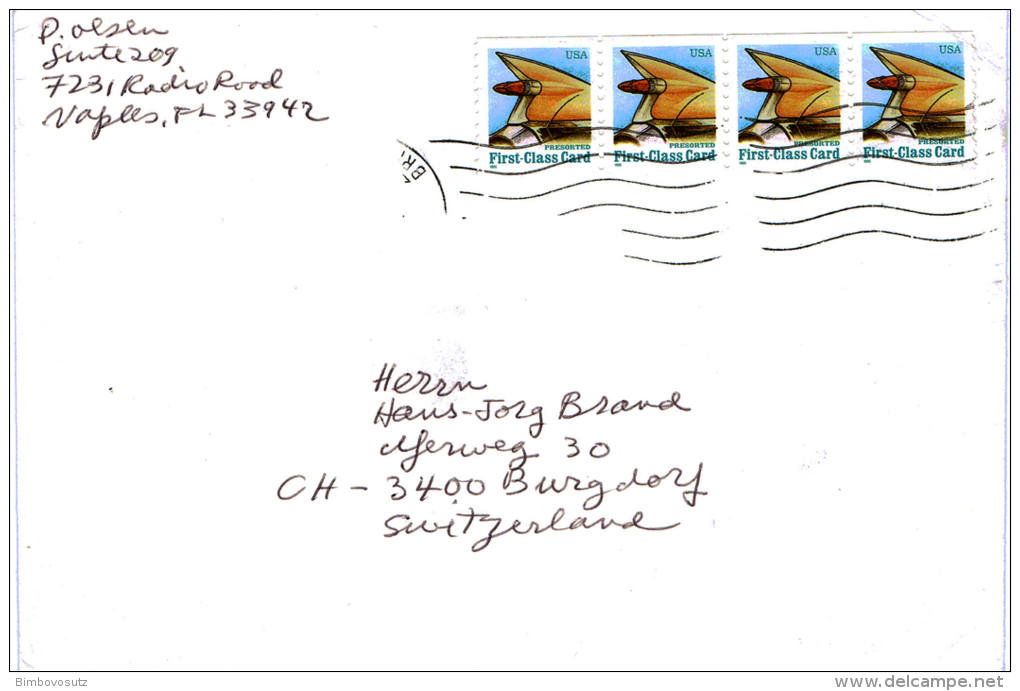 P. Olsen
Suite 209
7231 Radio Road
Naples, FL 33942
USA USA USA USA
PRESORTED PRESORTED PRESORTED PRESORTED
First-Class Card First-Class Card First-Class Card First-Class Card
Herrn
Hans-Jorg Brand
30
CH - 3400 Burgdorf
Switzerland
Bimbovosutz
delcampe.net